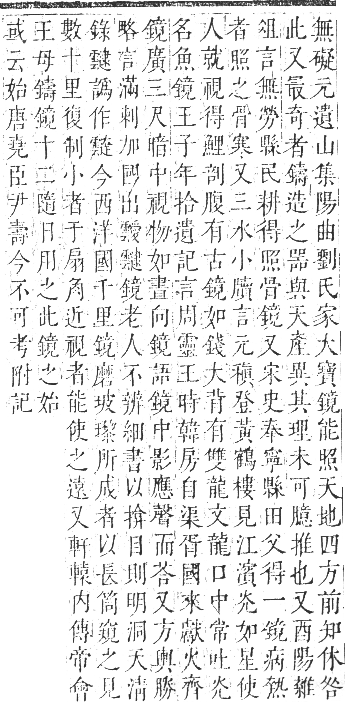 無礙元遺山集陽曲劉氏家大寶鏡能照天地四方前知休咎
此又最奇者鑄造之噐與天產異其理未可臆推也又酉陽雜
俎言無勞縣民耕得照骨鏡又宋史奉寧縣田父得一鏡病熱
者照之骨寒又三水小牘言元稹登黃鶴樓見江濱光如星使
人就視得鯉剖腹有古鏡如錢大背有雙龍文龍口中常吐光
名魚鏡王子年拾遺記言周靈王時韓房自渠胥國來獻火齊
鏡廣三尺暗中視物如晝向鏡語鏡中影應聲而荅又方輿勝
略言滿剌加國出靉靆鏡老人不辨細書以揜目則明洞天清
錄靆譌作靆今西洋國千里鏡磨玻瓈所成者以長筒窺之見
數十里復制小者于扇角近視者能使之遠又軒轅内傳帝會
王母鑄鏡十二隨日用之此鏡之始
或云始唐堯臣尹壽今不可考附記